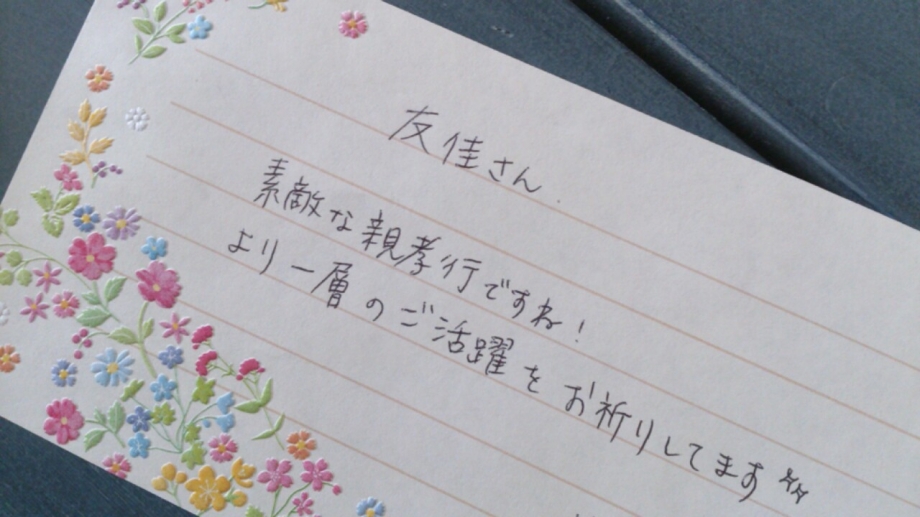 友佳さん
素敵な親孝行ですね!
より一層のご活躍をお祈りしてます